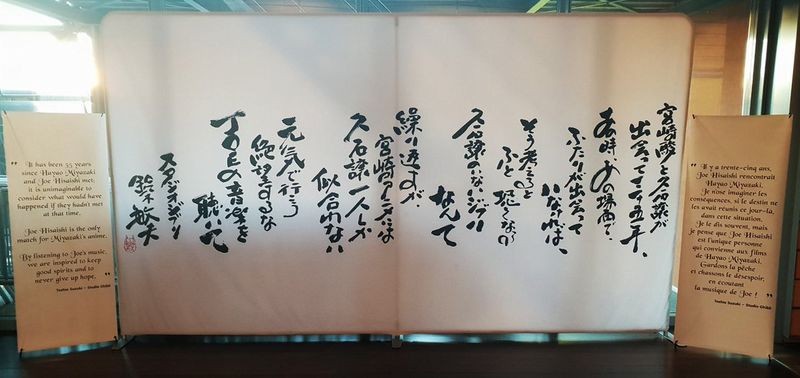 " It has been 35 years
since Hayao Miyazaki
and Joe Hisaishi met;
it is unimaginable to
consider what would
have happened if they hadn't met
at that time.
Joe Hisaishi is the only
match for Miyazaki's anime.
By listening to Joe's music,
we are inspired to keep
good spirits and to
never give up hope. "
Toshio Suzuki - Studio Ghibli
宮崎駿と久石譲が
出会って三十五年、
あの時、あの場面で、
ふたりが出会って
いなければ、
そう考えると
ふと恐くなる
久石譲のいないジブリ
なんて
繰り返すが
宮崎アニメには
久石譲一人しか
似合わない
元気で行こう
絶望するな
JOEの音楽を
聴いて
スタジオジブリ
鈴木敏夫
" Il y a trente-cinq ans,
Joe Hisaishi rencontrait
Hayao Miyazaki.
Je n'ose imaginer les
conséquences, si le destin ne
les avait réunis ce jour-là,
dans cette situation.
Je le dis souvent, mais
je pense que Joe Hisaishi
est l'unique personne
qui convienne aux films
de Hayao Miyazaki.
Gardons la pêche
et chassons le désespoir,
en écoutant
la musique de Joe ! "
Toshio Suzuki - Studio Ghibli